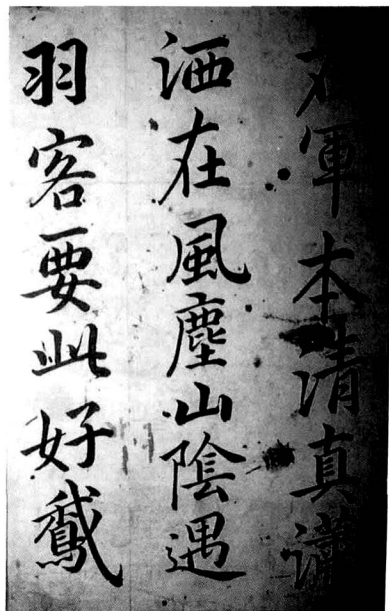 右軍本清真瀟
洒在風塵山陰遇
羽客要此好鵞